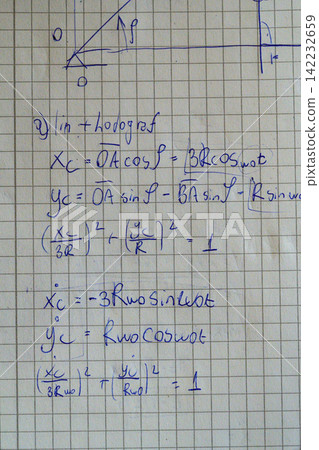 O
φ
O
a) lin + hodograf
x_C = \overline{OA} cosφ = 3Rcosω₀t
y_C = \overline{OA} sinφ - \overline{BA} sinφ - R sinω₀
(x_C/3R)² + (y_C/R)² = 1
ẋ_C = -3Rω₀sinω₀t
ẏ_C = Rω₀cosω₀t
(ẋ_C/3Rω₀)² + (ẏ_C/Rω₀)² = 1
PIXTA
pixta.jp - 142232659